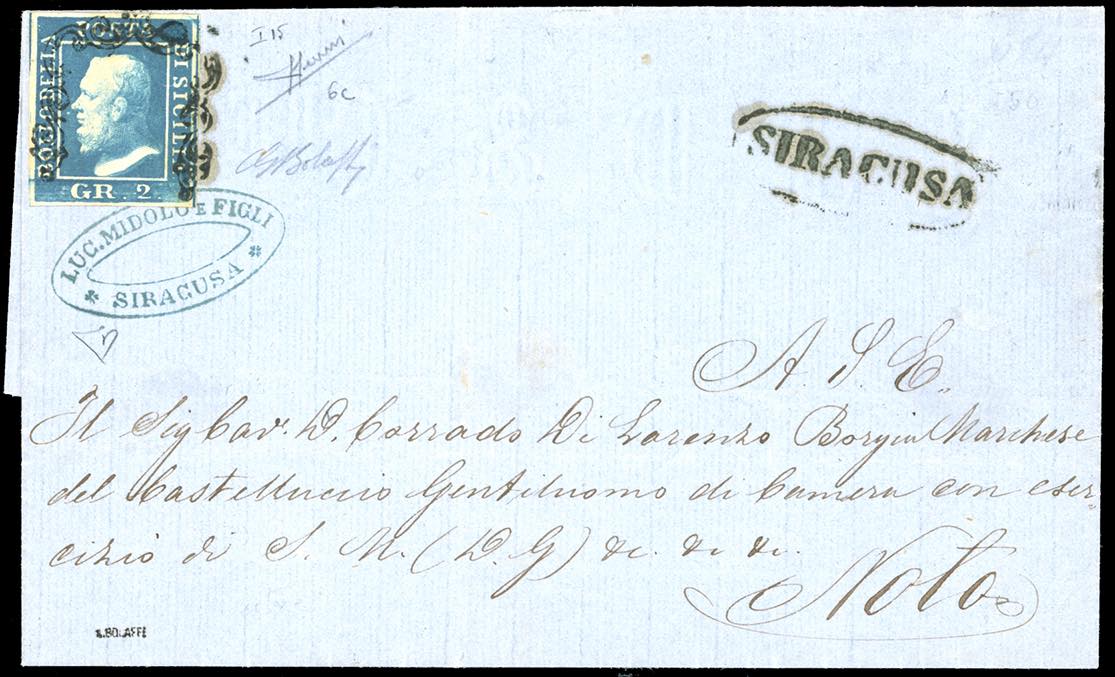 BOLLO DELLA POSTA DI SICILIA
GR. 2.
I 15
6c
LUC. MIDOLO E FIGLI
* SIRACUSA *
SIRACUSA
A S E.
Il Sig Cav. D. Corrado Di Lorenzo Borgia Marchese
del Castelluccio Gentiluomo di Camera con eser-
cizio di S. M. (D. G) &c. &c &c.
Noto